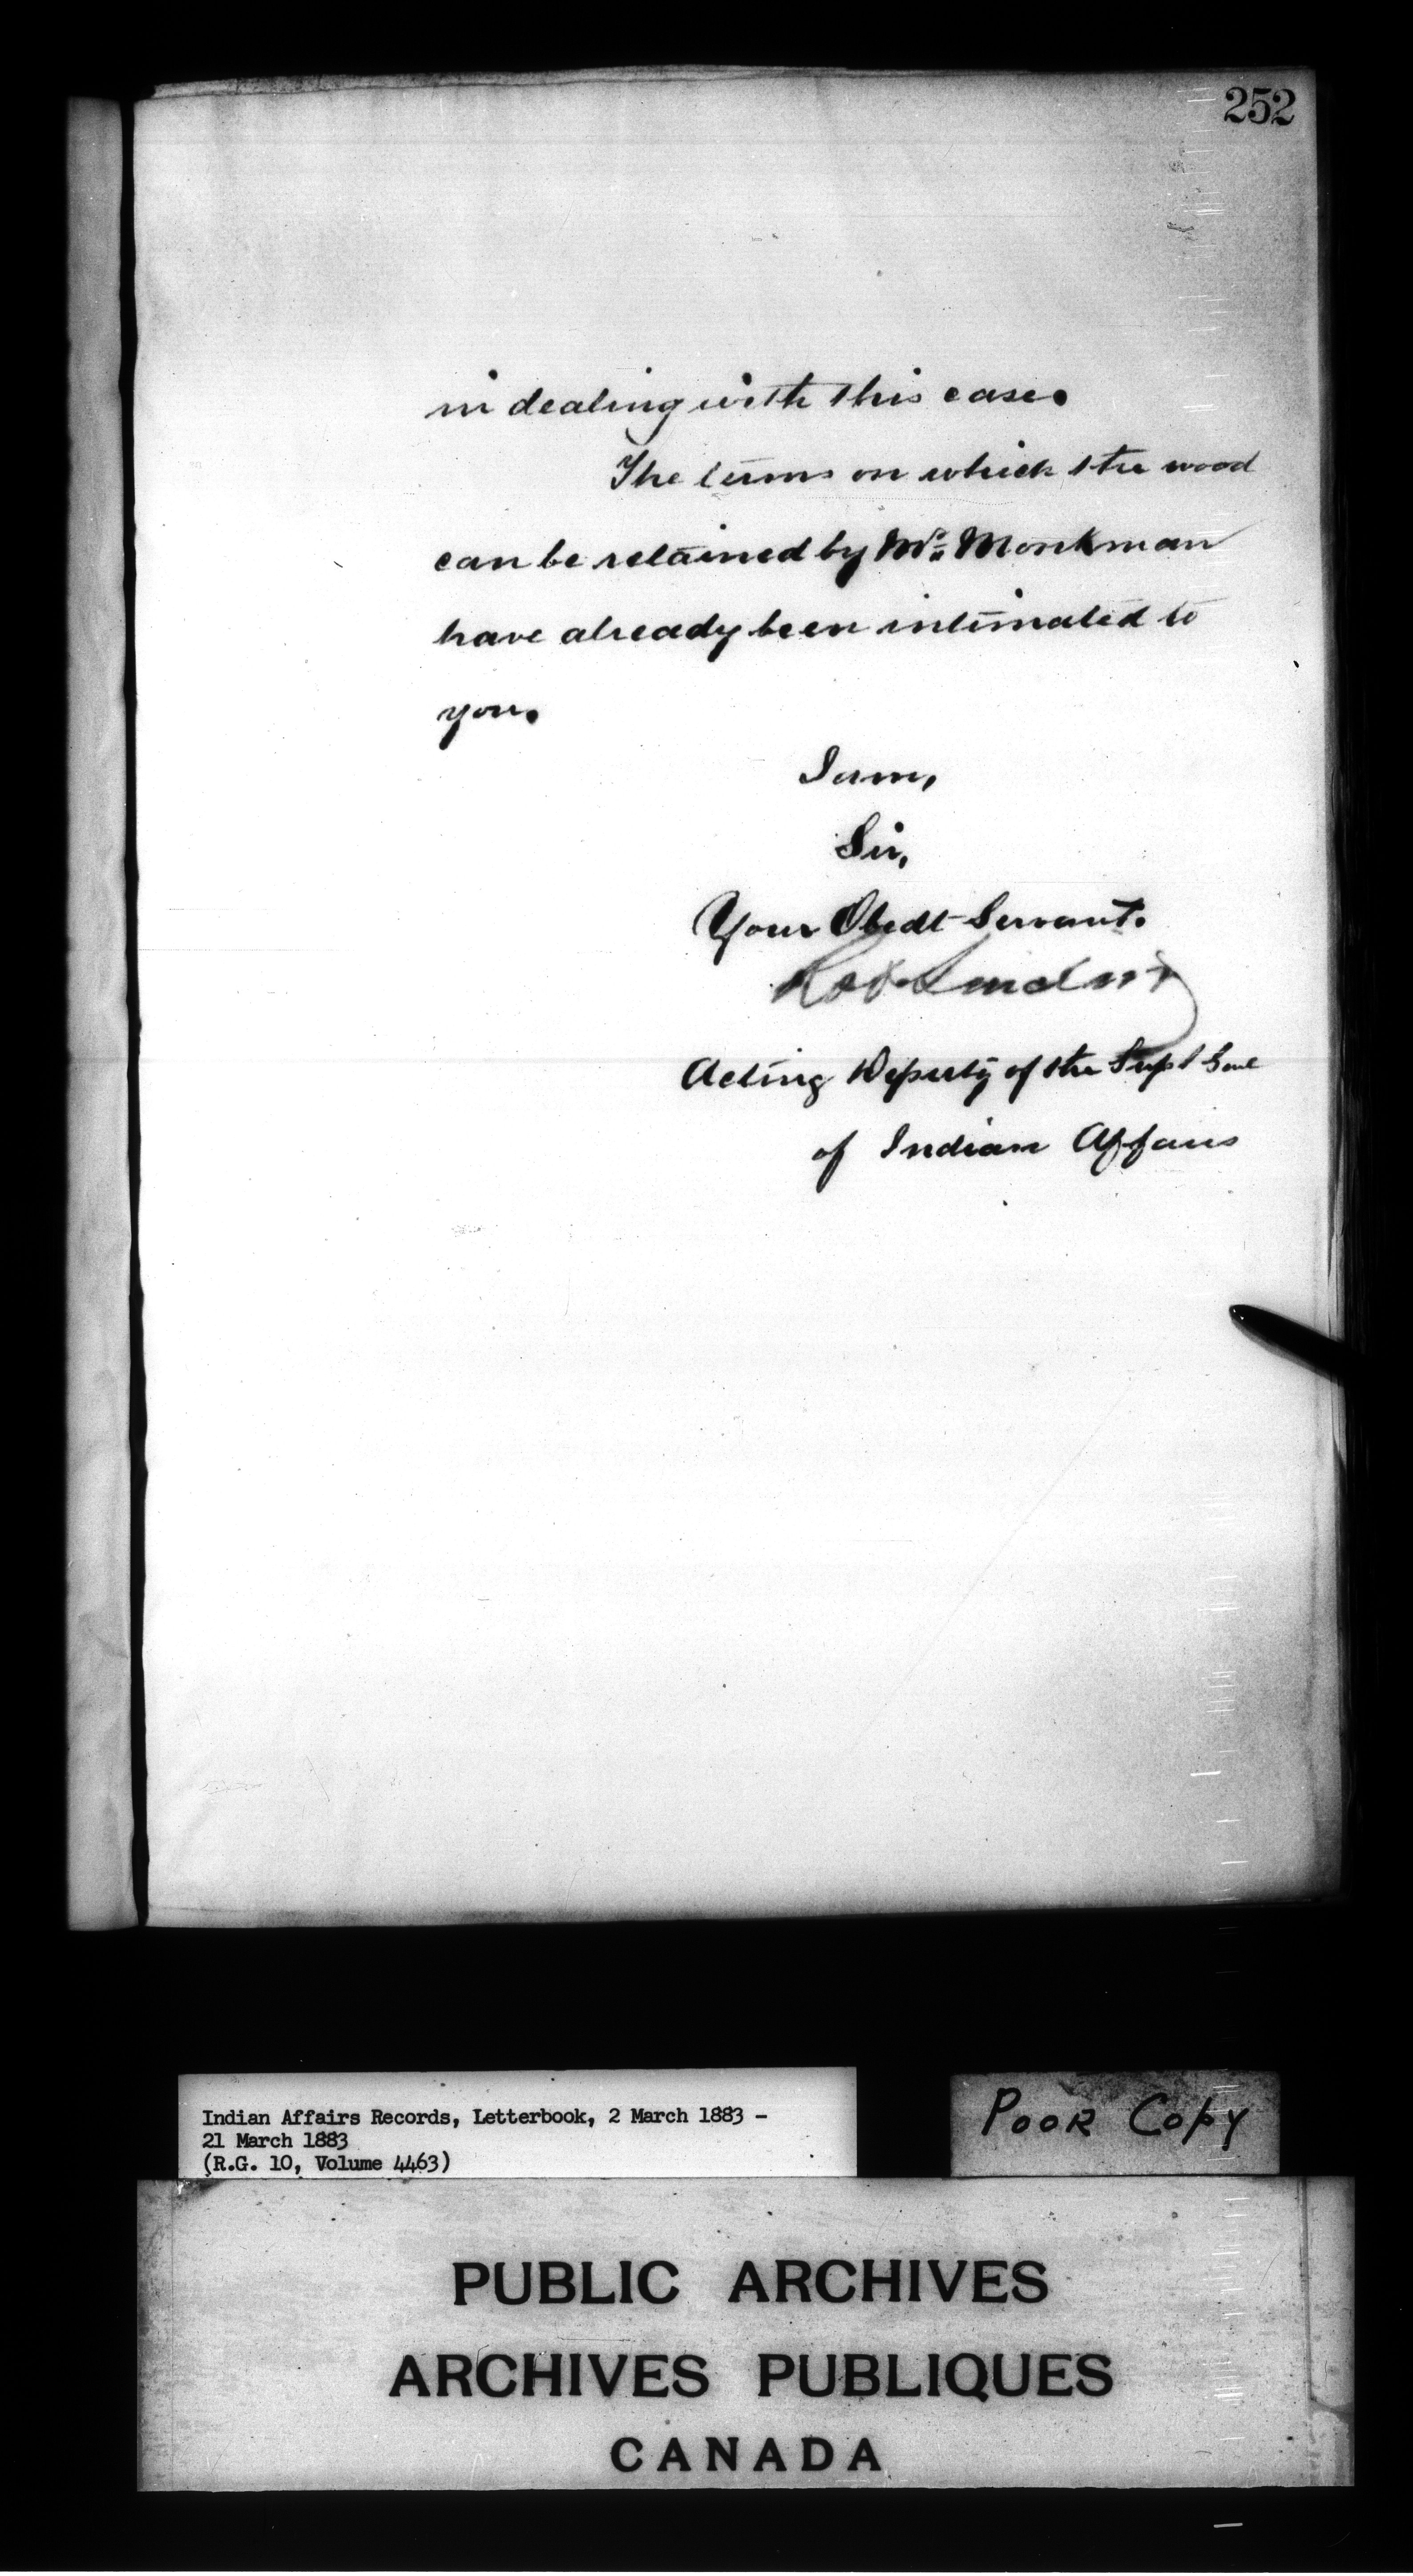 252
in dealing with this case.
The terms on which the wood
can be retained by Mr. Monkman
have already been intimated to
you.
I am,
Sir,
Your Obedt Servant.
Acting Deputy of the Supt Genl
of Indian Affairs
Indian Affairs Records, Letterbook, 2 March 1883 -
21 March 1883
(R.G. 10, Volume 4463)
POOR COPY
PUBLIC ARCHIVES
ARCHIVES PUBLIQUES
CANADA